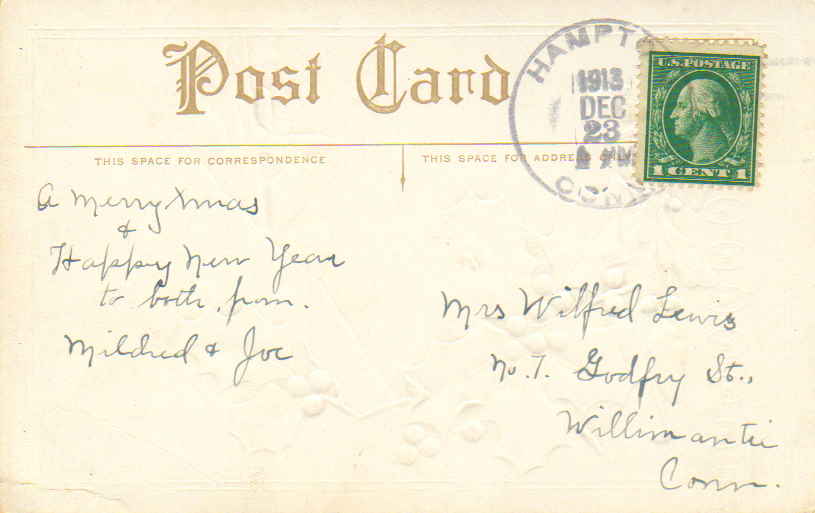 Post Card
HAMPT
1913
DEC
23
CONN
U.S. POSTAGE
1 CENT 1
THIS SPACE FOR CORRESPONDENCE
THIS SPACE FOR ADDRESS ONLY
A Merry Xmas
&
Happy New Year
to both from.
Mildred & Joe
Mrs Wilfred Lewis
No. 7. Godfry St.,
Willimantic
Conn.